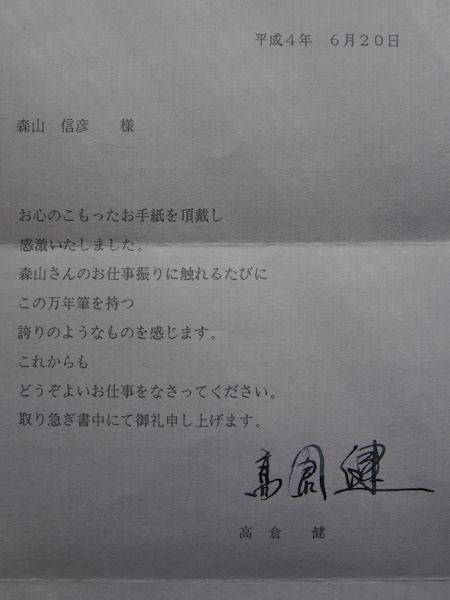 平成４年　６月２０日
森山　信彦　　様
お心のこもったお手紙を頂戴し
感激いたしました。
森山さんのお仕事振りに触れるたびに
この万年筆を持つ
誇りのようなものを感じます。
これからも
どうぞよいお仕事をなさってください。
取り急ぎ書中にて御礼申し上げます。
高倉健
高　倉　　健